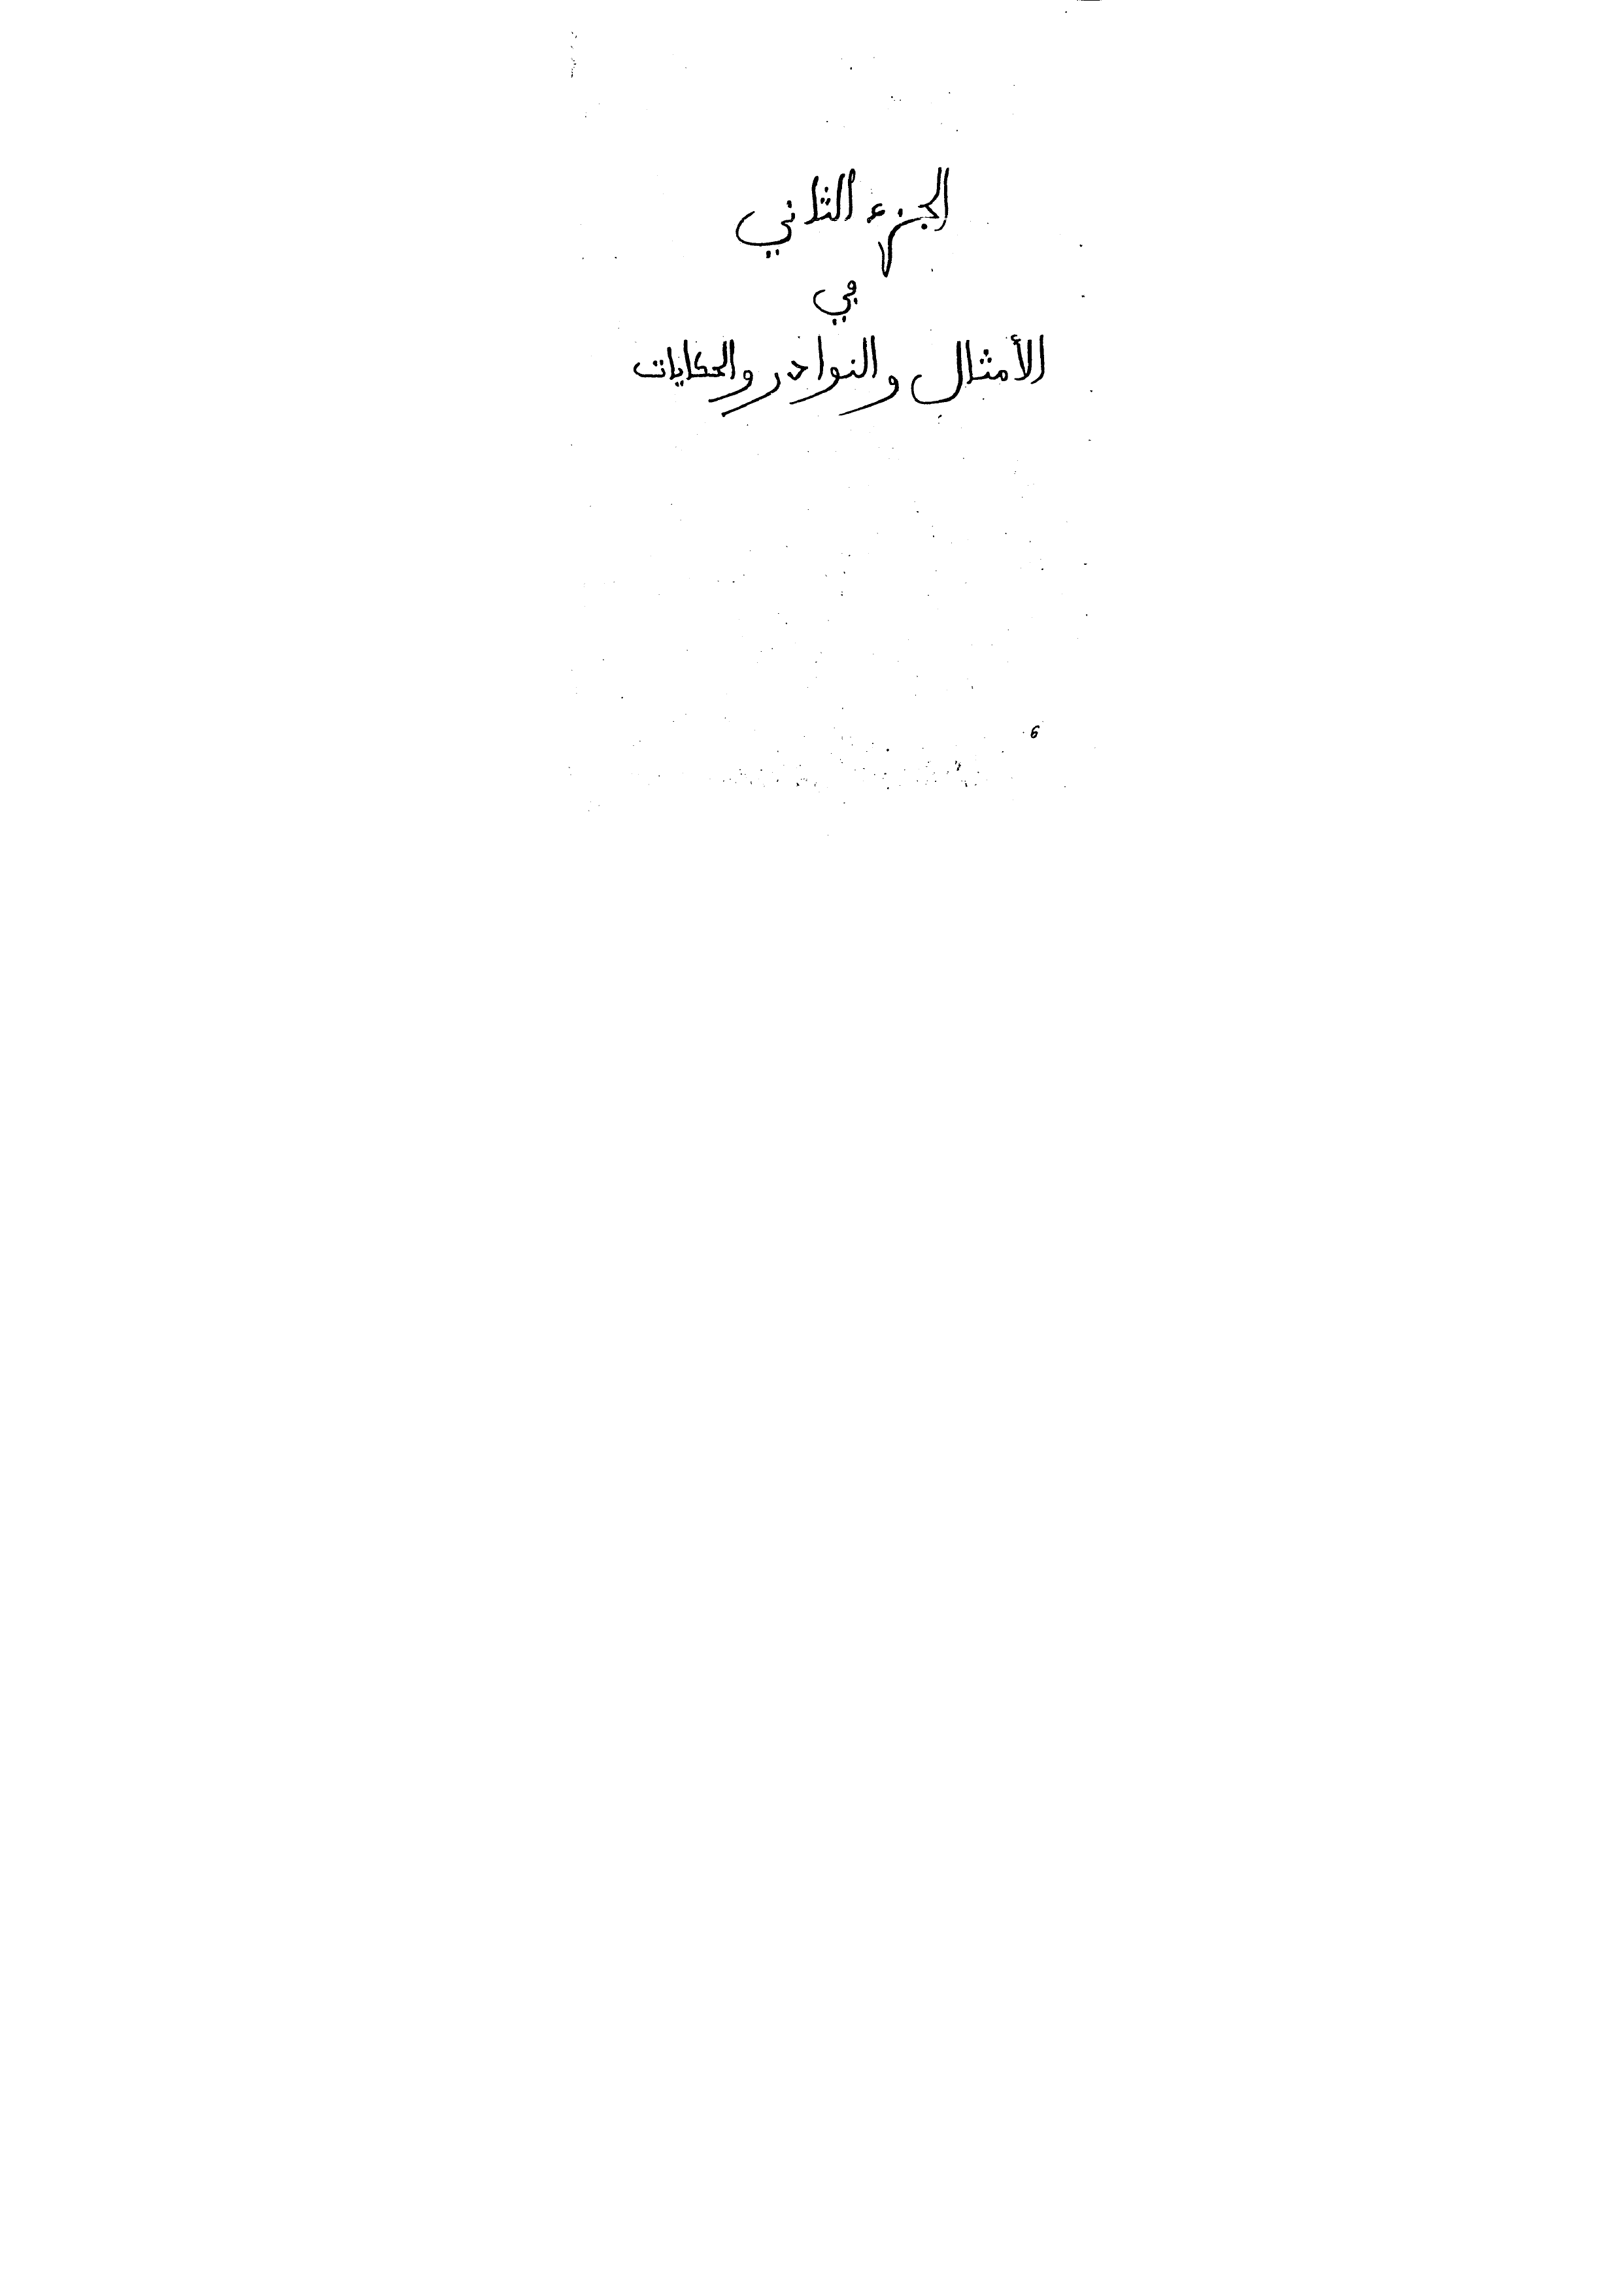 الجزء الثاني
في
الأمثال والنوادر والحكايات
6